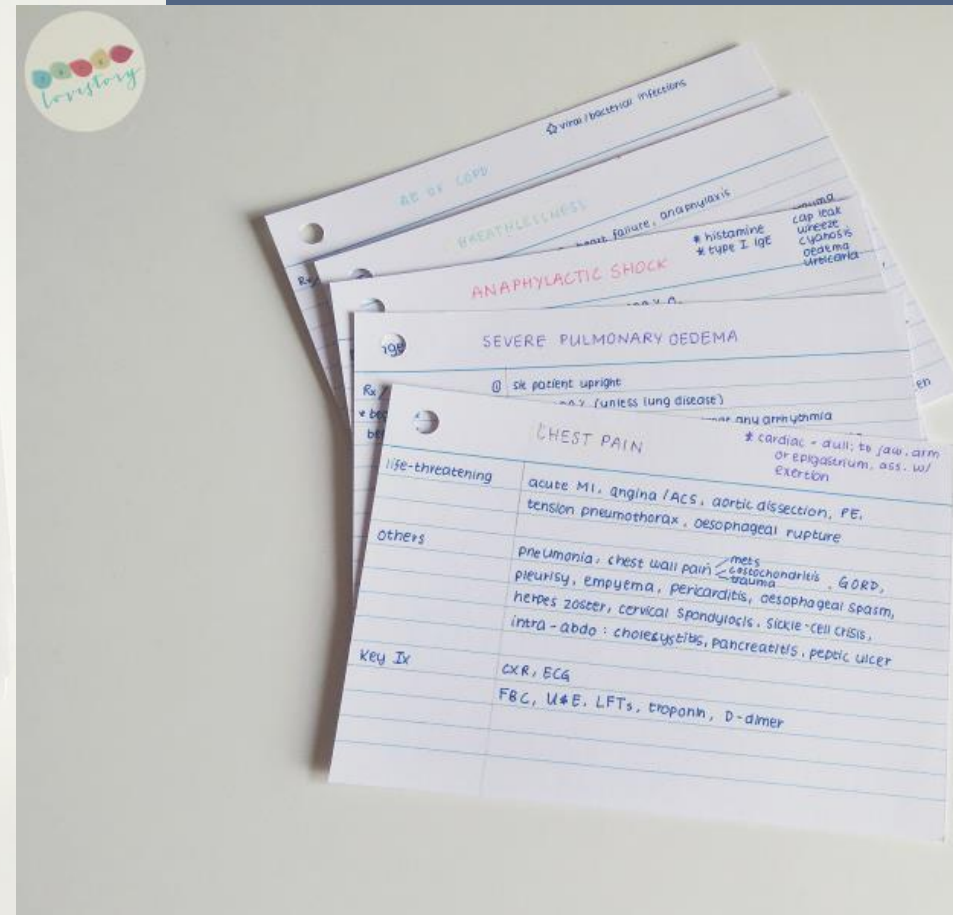 lovistory
☆ viral/bacterial infections
AE OF COPD
BREATHLESSNESS
heart failure, anaphylaxis
Rx/
ANAPHYLACTIC SHOCK
* histamine
* type I IgE
cap leak
wheeze
cyanosis
oedema
urticaria
SEVERE PULMONARY OEDEMA
Rx/
① sit patient upright
(unless lung disease)
any arrhythmia
CHEST PAIN
* cardiac - dull; to jaw, arm
or epigastrium, ass. w/
exertion
life-threatening
acute MI, angina/ACS, aortic dissection, PE,
tension pneumothorax, oesophageal rupture
others
pneumonia, chest wall pain mets costochondritis trauma, GORD,
pleurisy, empyema, pericarditis, oesophageal spasm,
herpes zoster, cervical spondylosis, sickle-cell crisis,
intra-abdo: cholecystitis, pancreatitis, peptic ulcer
Key Ix
CXR, ECG
FBC, U&E, LFTs, troponin, D-dimer